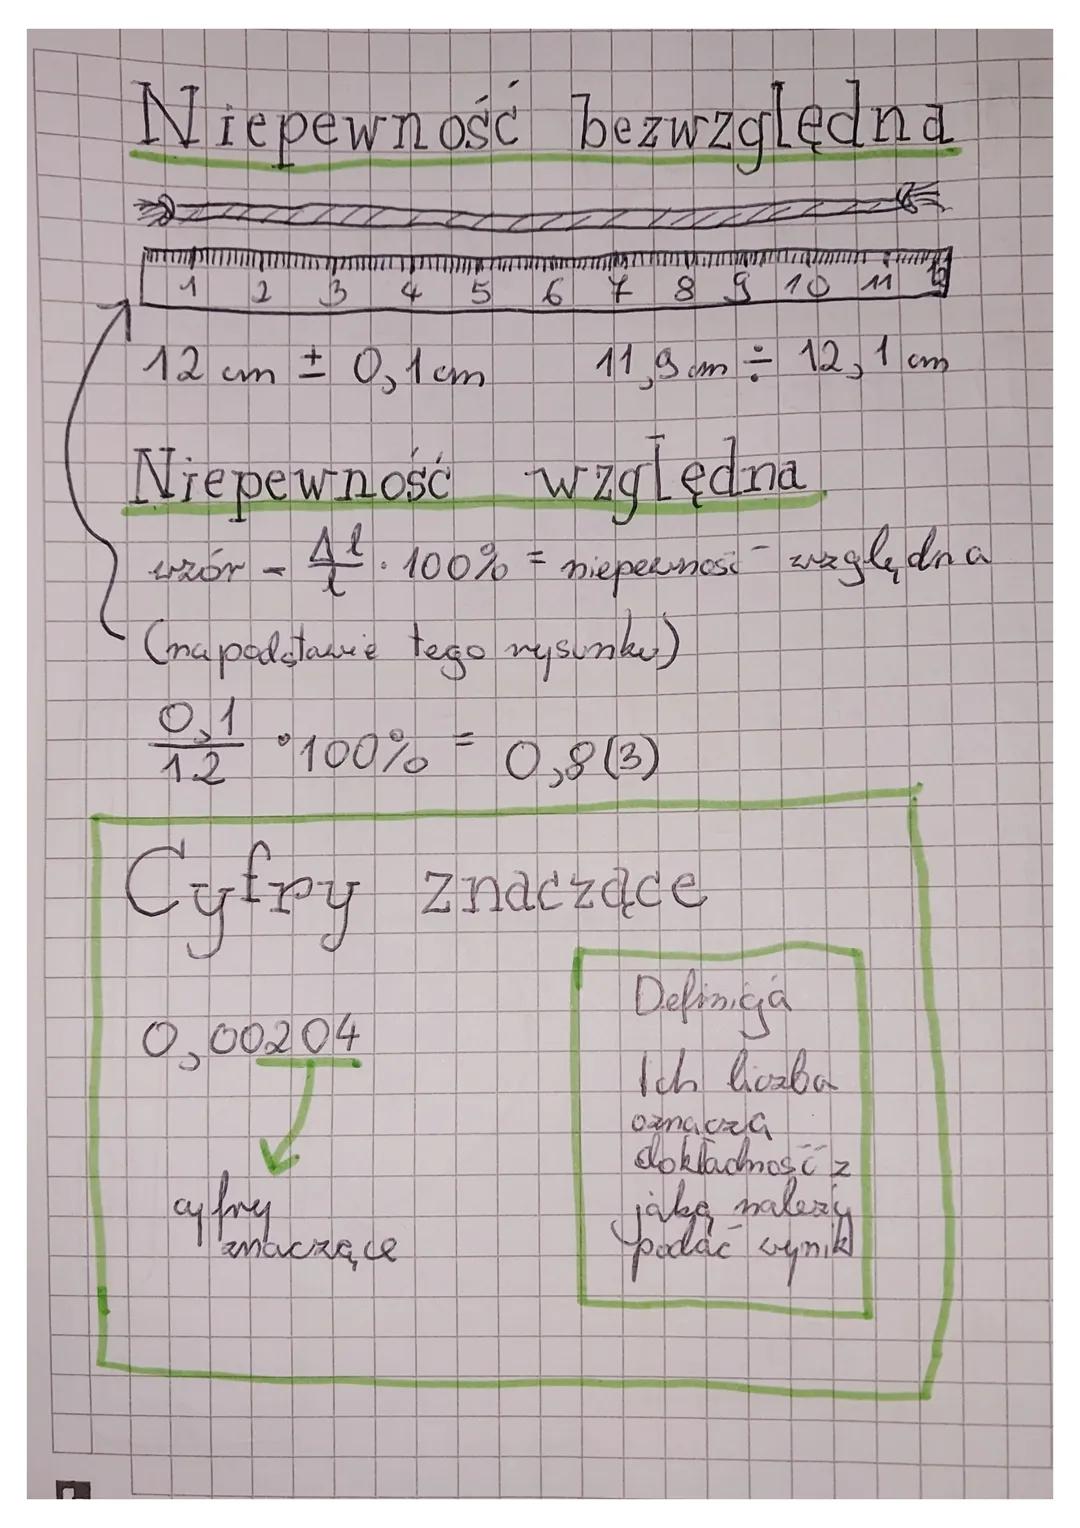 Niepewność bezwzględna
1 2 3 4 5 6 7 8 9 10 11 12
12 cm ± 0,1 cm 11,9 cm ÷ 12,1 cm
Niepewność względna
wzór - Δl/l · 100% = niepewność względna
(na podstawie tego rysunku)
0,1/12 · 100% = 0,8(3)
Cyfry znaczące
0,00204
cyfry
znaczące
Definicja
Ich liczba
oznacza
dokładność z
jaką należy
podać wynik